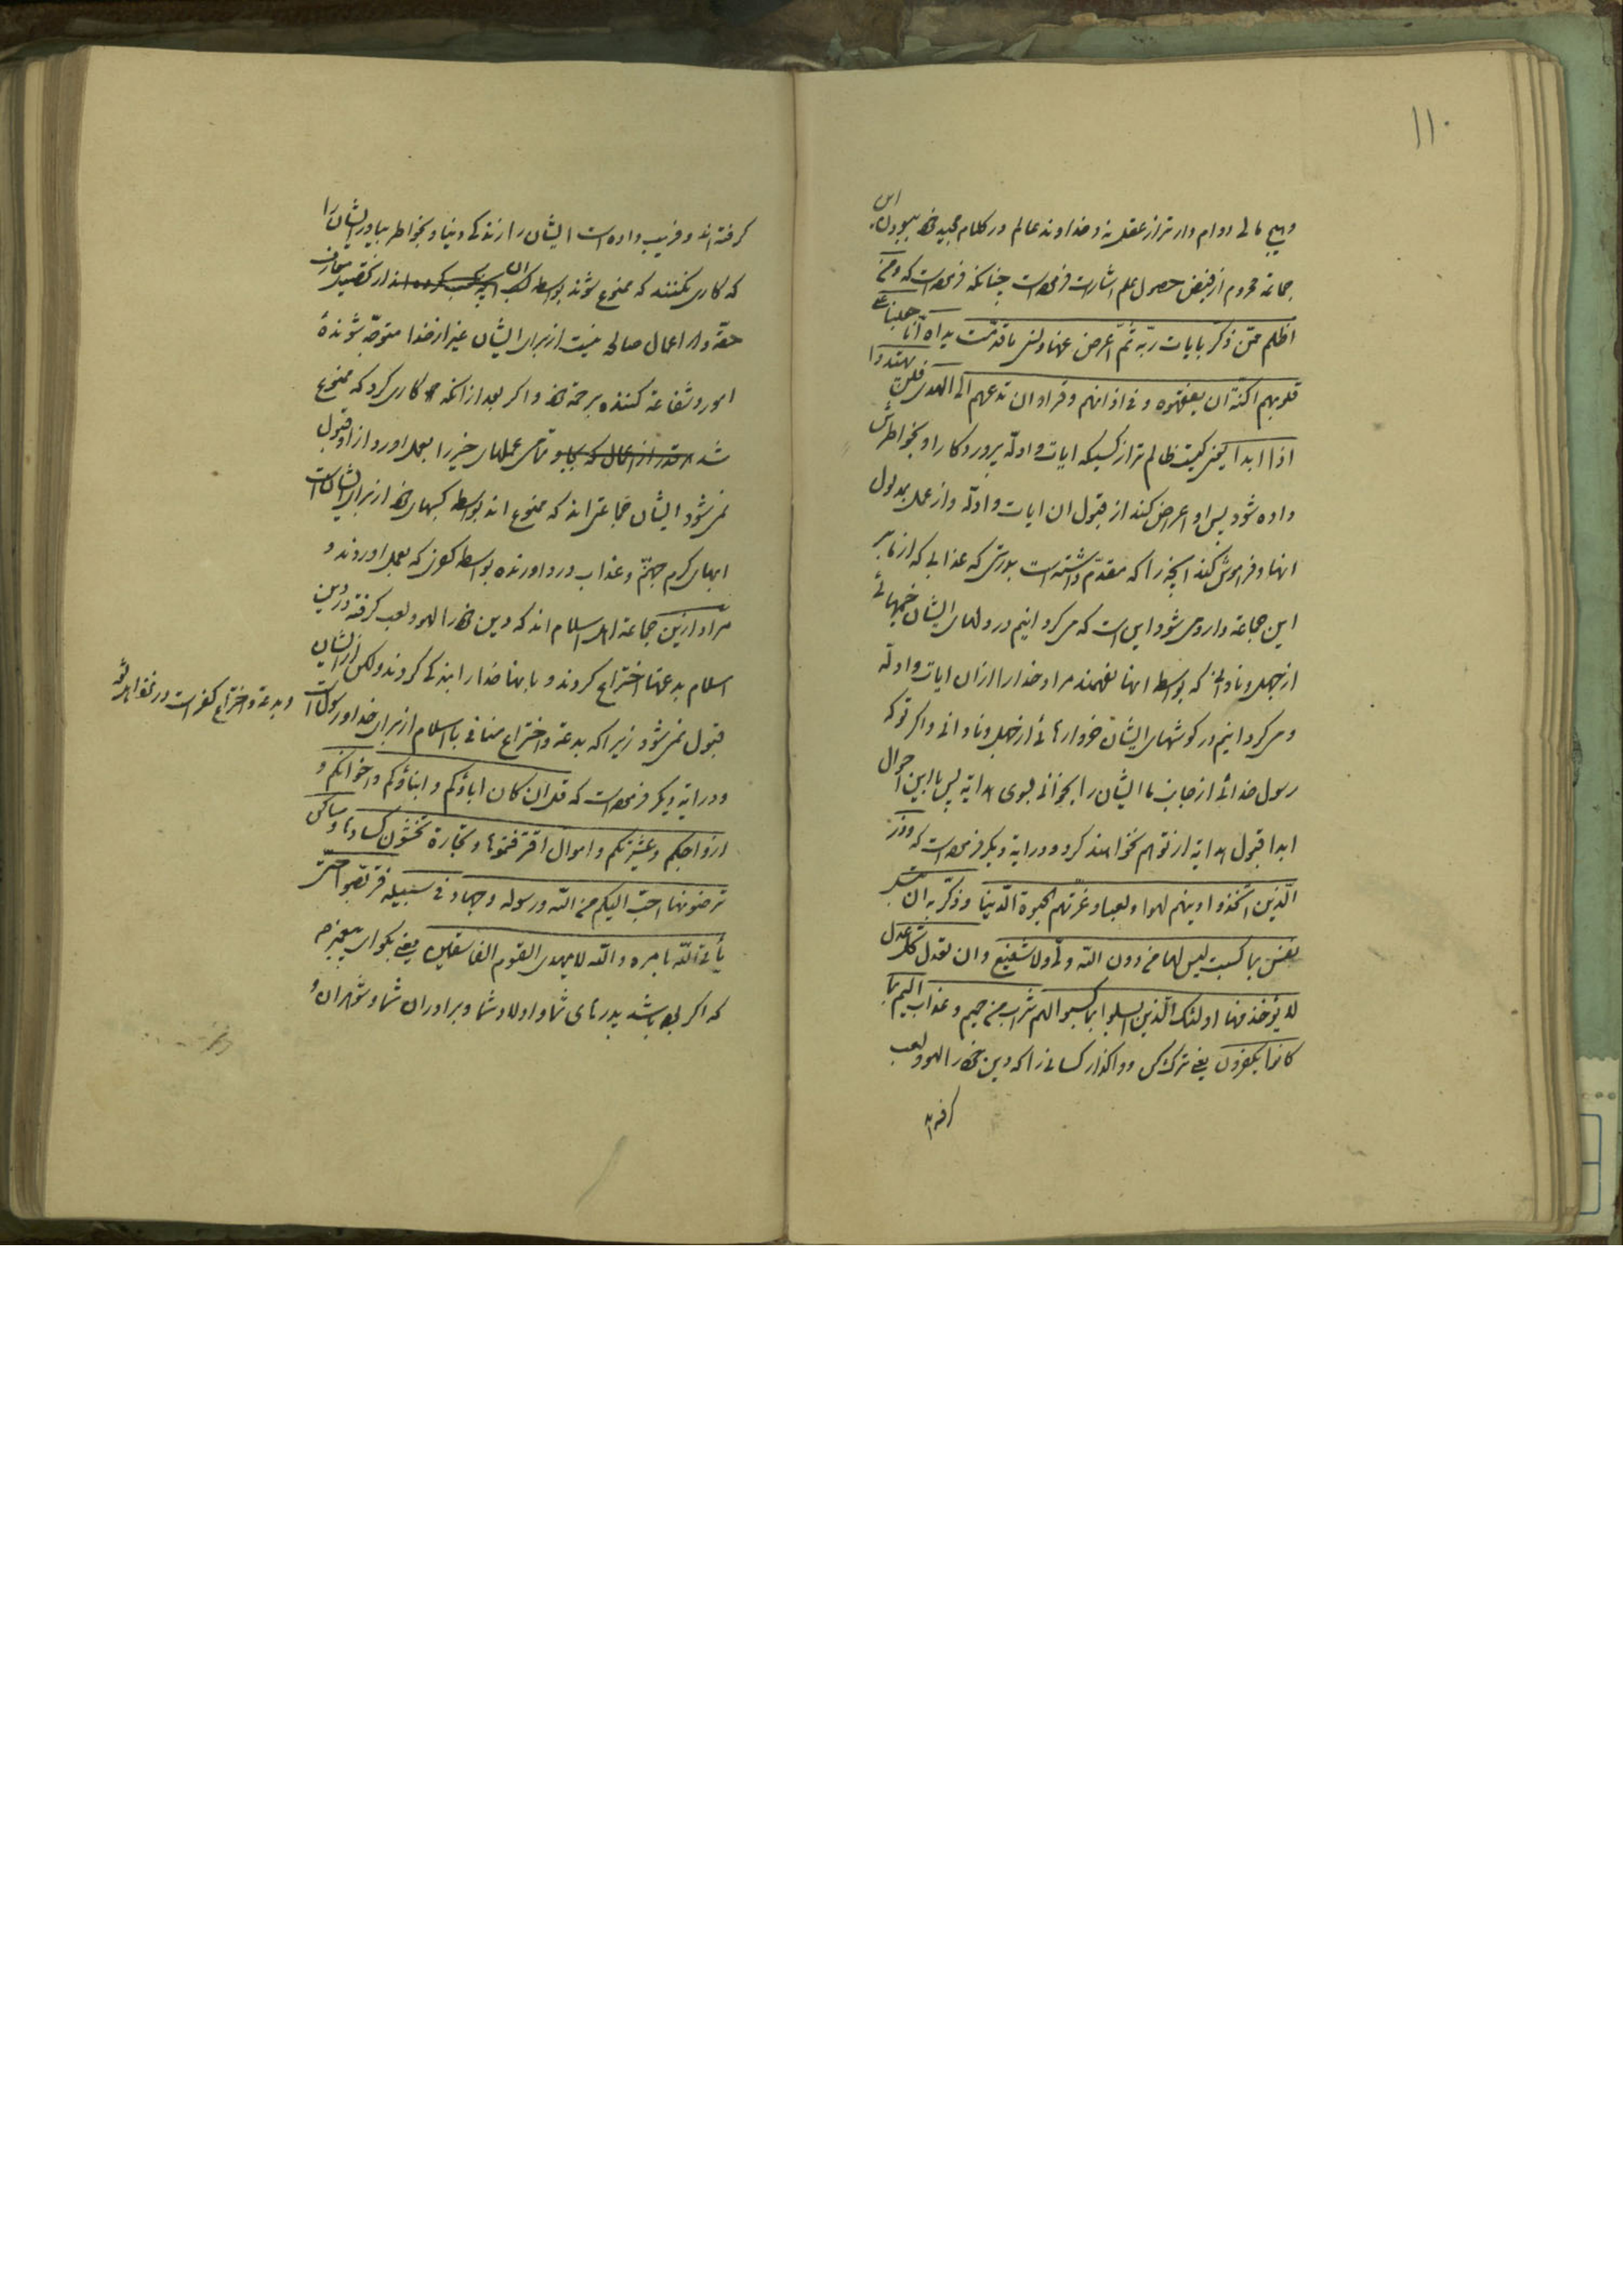 ۱۱۰
و هیچ مالی دوام دارتر از عقل نه و خداوند عالم در کلام مجید خود ببودن این
جماعة محروم از فیض حصول علم اشارت فرموده است چنانکه فرموده است که و من
اظلم ممن ذکر بایات ربه ثم اعرض عنها و نسی ما قدمت یداه انا جعلنا علی
قلوبهم اکنة ان یفقهوه و فی اذانهم وقرا و ان تدعهم الی الهدی فلن یهتدوا
اذا ابدا یعنی کیست ظالم تر از کسیکه ایات و ادلّه پروردکار او بخواطرش
داده شود پس او اعراض کند از قبول ان ایات و ادلّه و از عمل بمدلول
انها و فراموش کند انچه را که مقدّم داشته است بودش که عذابی که از ما بر
این جماعة وارد می شود این است که می کردانیم در دلهای ایشان خیمهائی
از جهل و نادانی که بواسطه انها نفهمند مراد خدا را از ان ایات و ادلّه
و می کردانیم در کوشهای ایشان خروارهائی از جهل و نادانی و اکر تو که
رسول خدائی از جانب ما ایشان را بخوانی بسوی هدایة پس با این احوال
ابدا قبول هدایة از تو هم نخواهند کرد و در ایة دیکر فرموده است که و ذر
الّذین اتخذوا دینهم لهوا و لعبا و غرّتهم الحیوة الدّنیا و ذکّر به ان تبسل
نفس بما کسبت لیس لها من دون اللّه ولی و لا شفیع و ان تعدل کل عدل
لا یؤخذ منها اولئک الّذین ابسلوا بما کسبوا لهم شراب من حمیم و عذاب الیم بما
کانوا یکفرون یعنی ترک کن و واکذار کسانی را که دین خود را لهو و لعب
کرفته اند
کرفته اند و فریب داده است ایشان را زندکی دنیا و بخواطر بیاور ایشان را
که کاری نکنند که ممنوع شوند بواسطه کسب ان انچه کسب کرده اند از تحصیل معارف
حقّه و از اعمال صالح نیست از برای ایشان غیر از خدا متوجّه شوندهٔ
امور و شفاعة کننده برحمة خود و اکر بعد از انکه کاری کرد که ممنوع
شد تمامی عملهای خیر را بعمل اورد از او قبول
نمی شود ایشان جماعتی اند که ممنوع اند بواسطه کسبهای خود از برای ایشان است
ابهای کرم جهنّم و عذاب درد اورنده بواسطه کفری که بعمل اوردند و
مراد از این جماعة اهل اسلام اند که دین خود را لهو و لعب کرفته در دین
اسلام بدعتها اختراع کردند و بانها خدا را بندکی کردند و لکن از ایشان
قبول نمی شود زیرا که بدعة و اختراع منافی با اسلام از برای خدا و رسول است
و بدعة و اختراع کفر است
و در ایة دیکر فرموده است که قل ان کان اباؤکم و ابناؤکم و اخوانکم و
ازواجکم و عشیرتکم و اموال اقترفتموها و تجارة تخشون کسادها و مساکن
ترضونها احبّ الیکم من اللّه و رسوله و جهاد فی سبیله فتربصوا حتّی
یأتی اللّه بامره و اللّه لا یهدی القوم الفاسقین یعنی بکو ای پیغمبر
که اکر بوده باشد پدرهای شما و اولاد شما و برادران شما و شوهران و